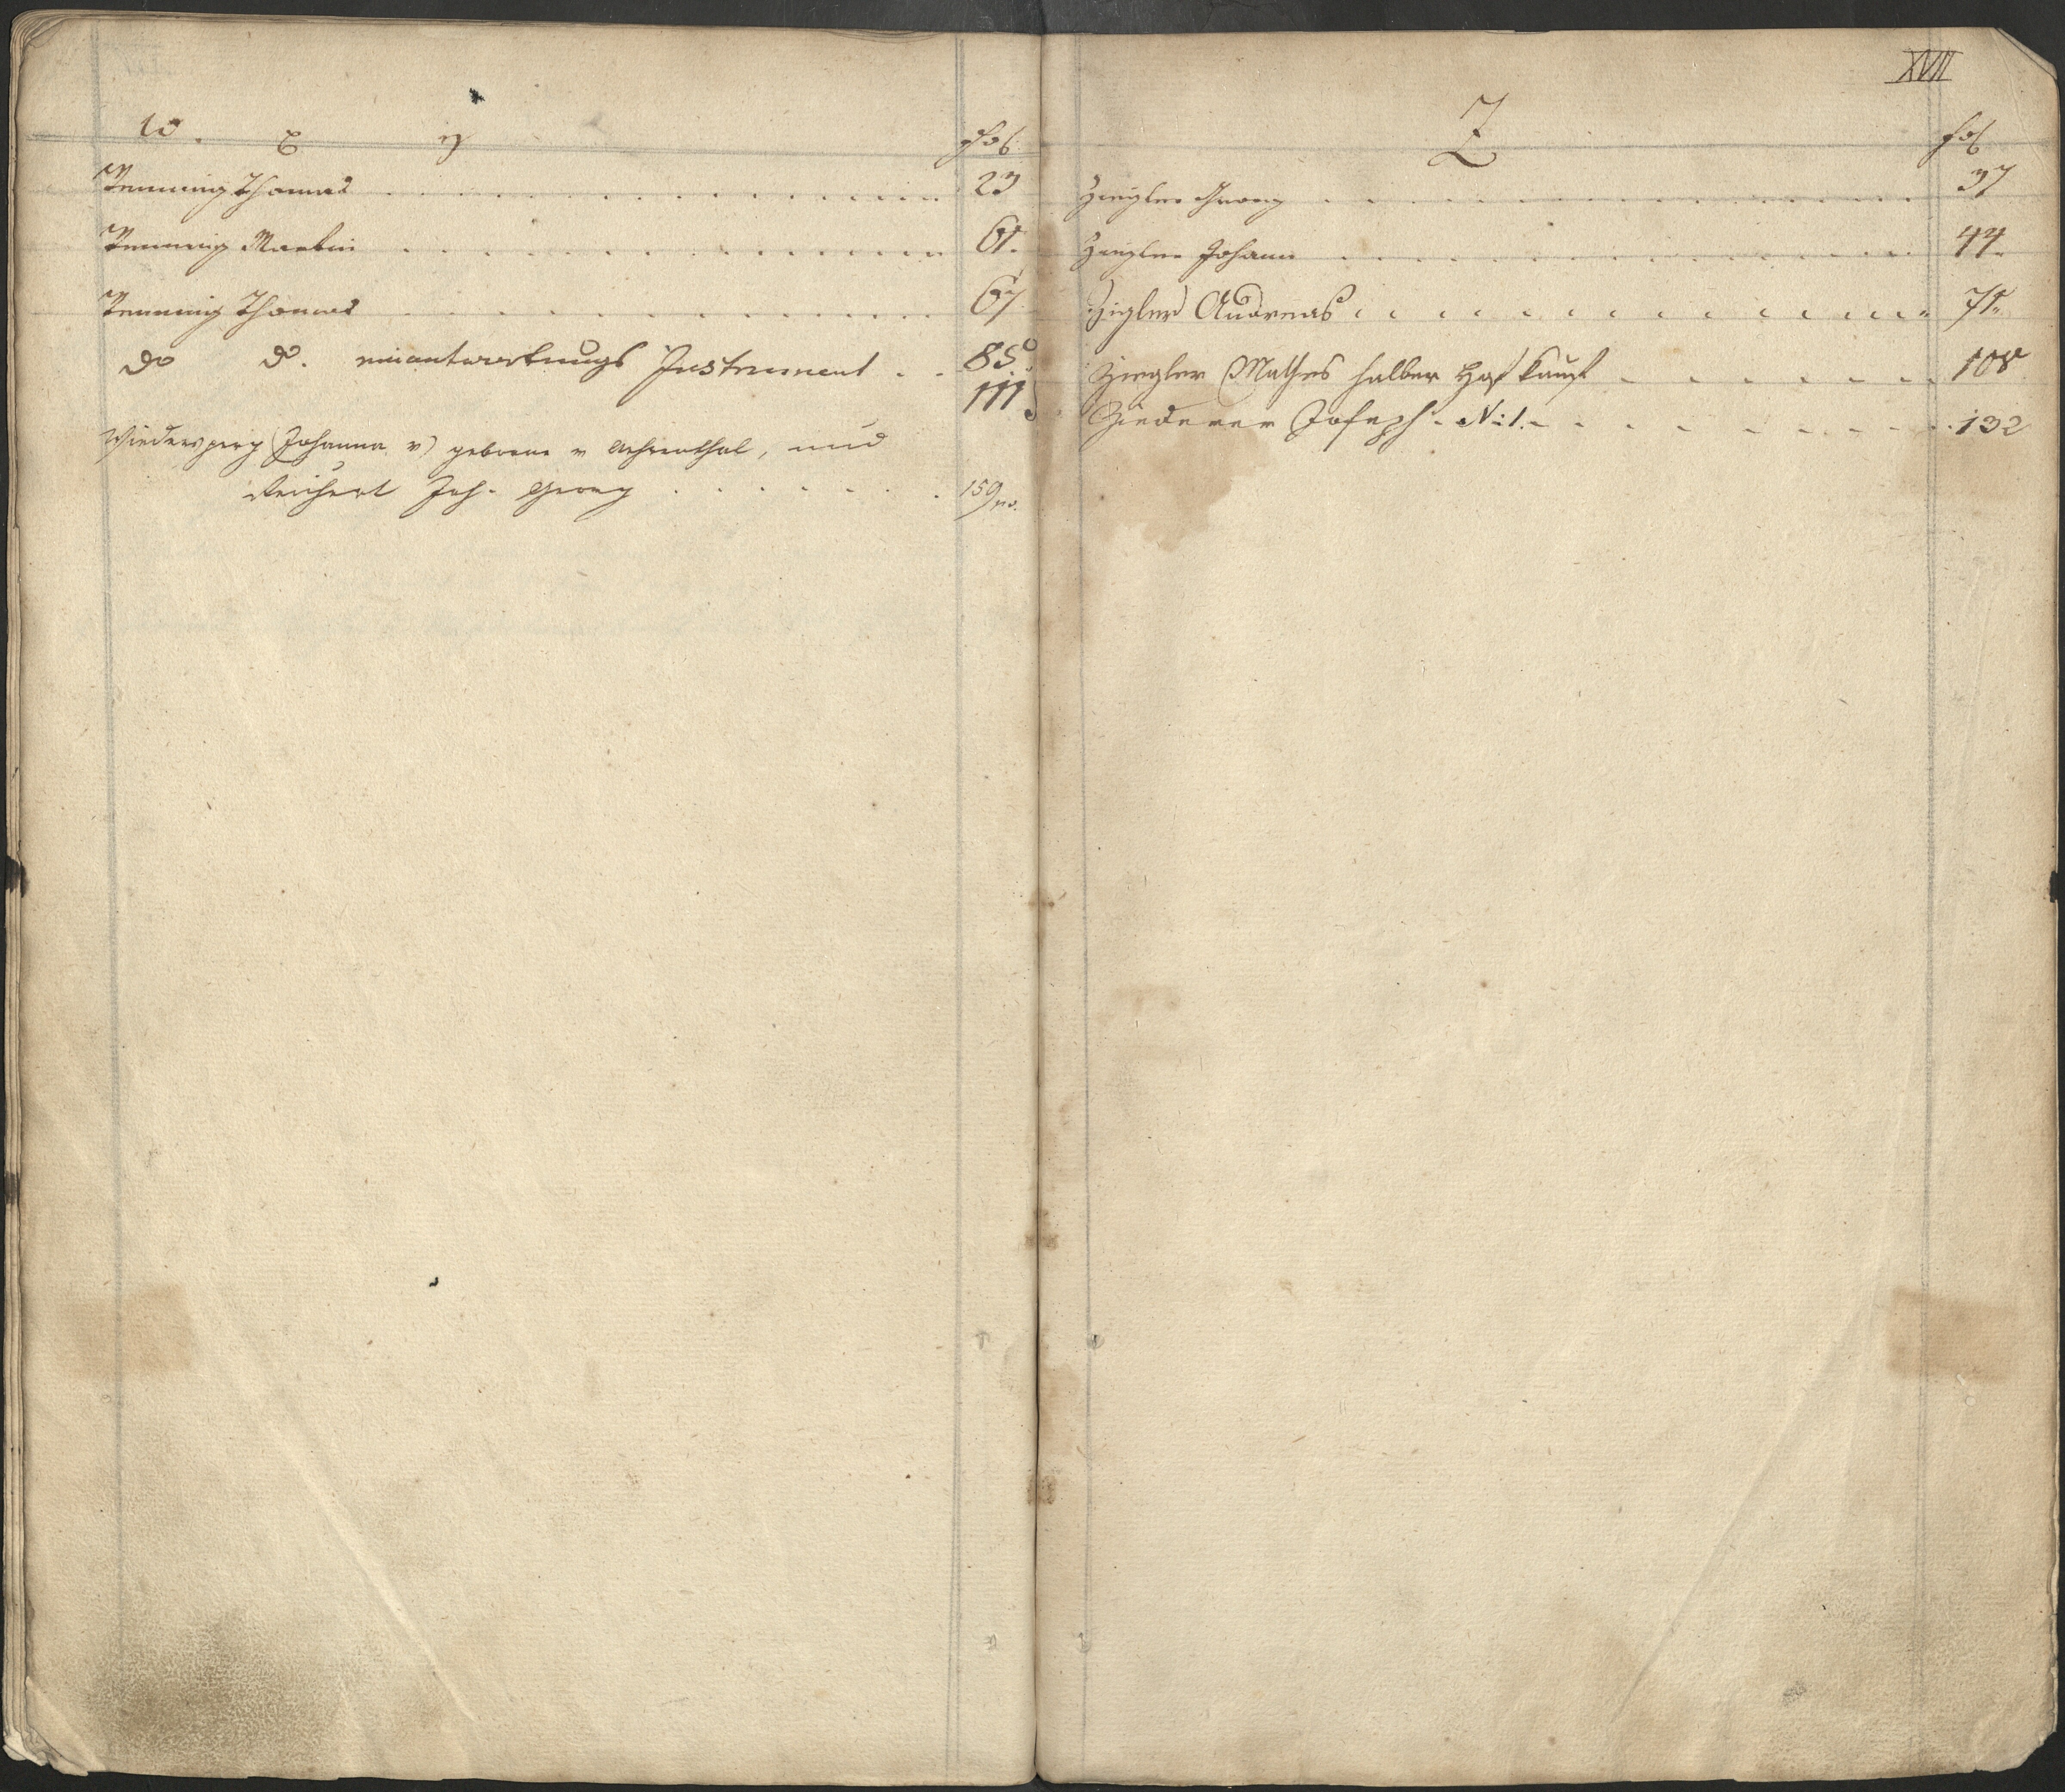 W. X Y Fol
Wenning Thomas 23
Wenning Martin 61.
Wenning Thomas 67
do do. einantwortungs Instrument 85.
111
Wiedersperg (Johanna v) geborene v Aehrenthal, und
Reichert Joh. Georg 159
XVII
Z fol
Ziegler Georg 37
Ziegler Johann 44.
Zigler Andreas 71.
Ziegler Mathes halber Hof Kauf 108
Ziederer Joseph. N: 1. 132